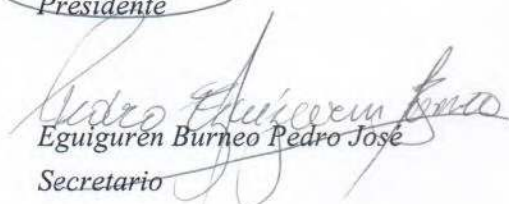 Presidente
Pedro Eguiguren Burneo
Eguiguren Burneo Pedro José
Secretario